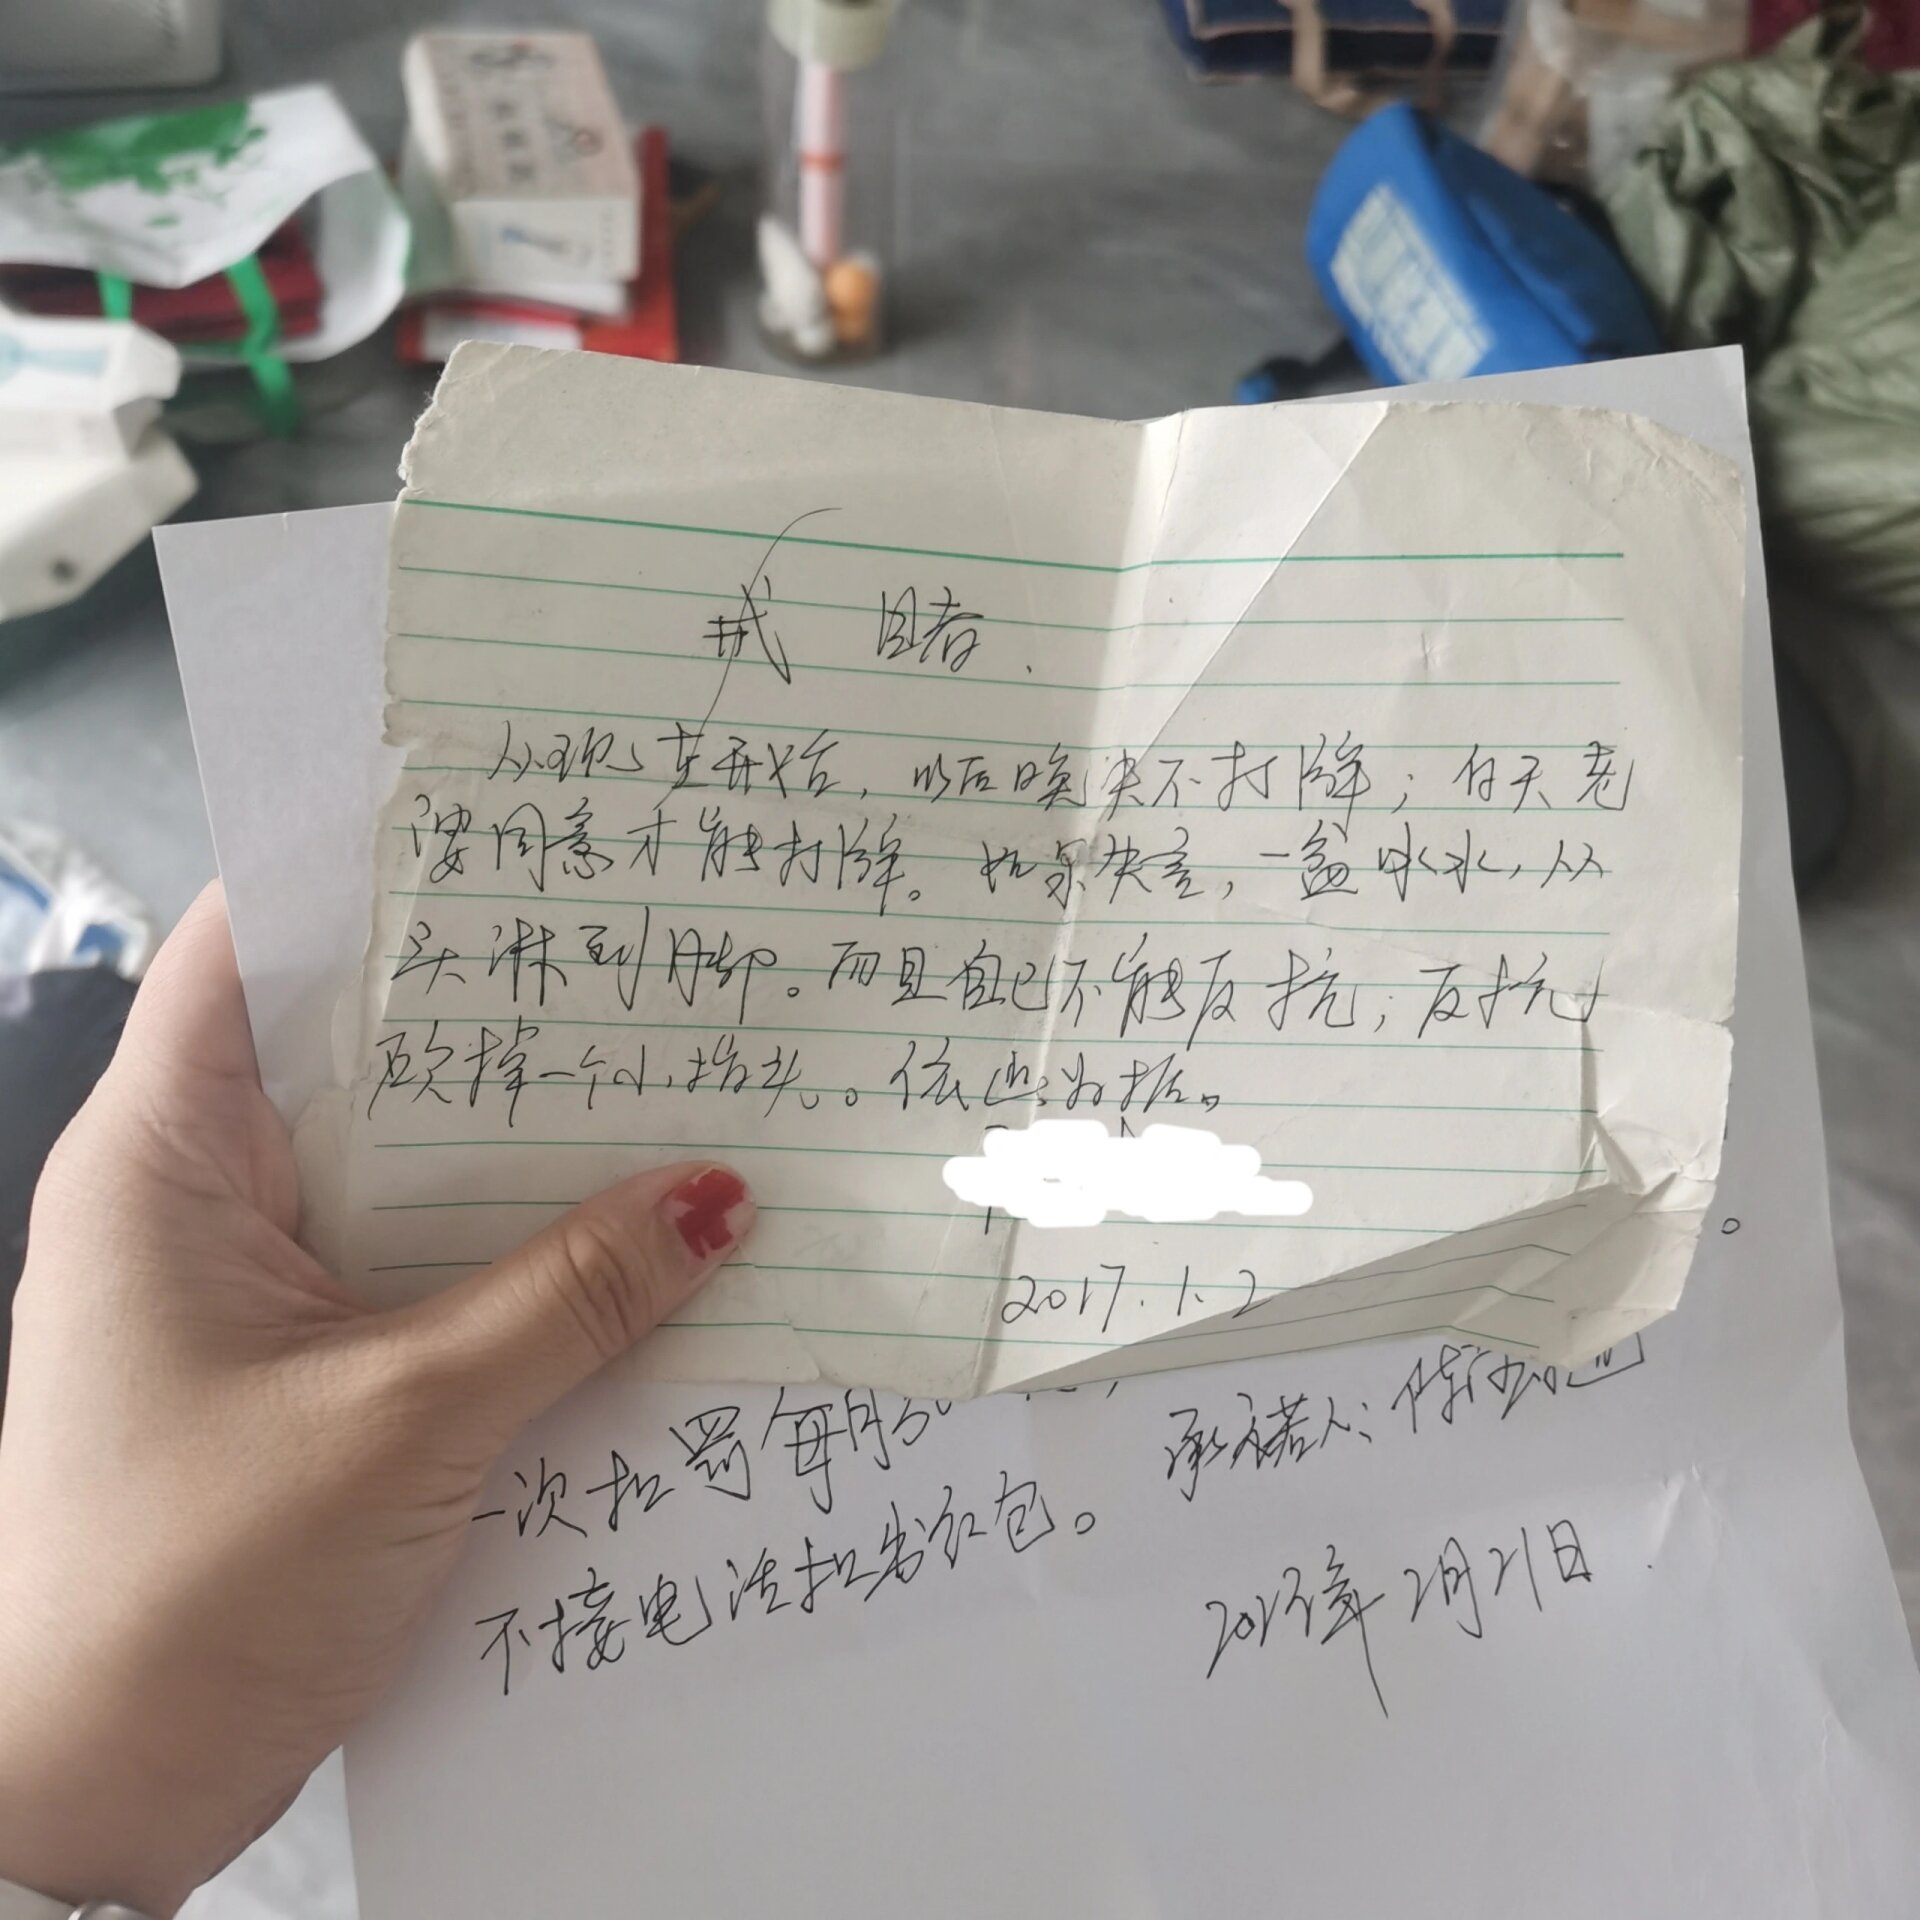 戒 赌.
从现在开始，以后晚夹不打牌；白天老
婆同意才能打牌。如果失言，一盆冰水，从
头淋到脚。而且自己不能反抗，反抗
砍掉一个小指头。依此为据。
2017.1.2
一次扣罚每月
承诺人：陈
不接电话扣发红包。
年2月21日.